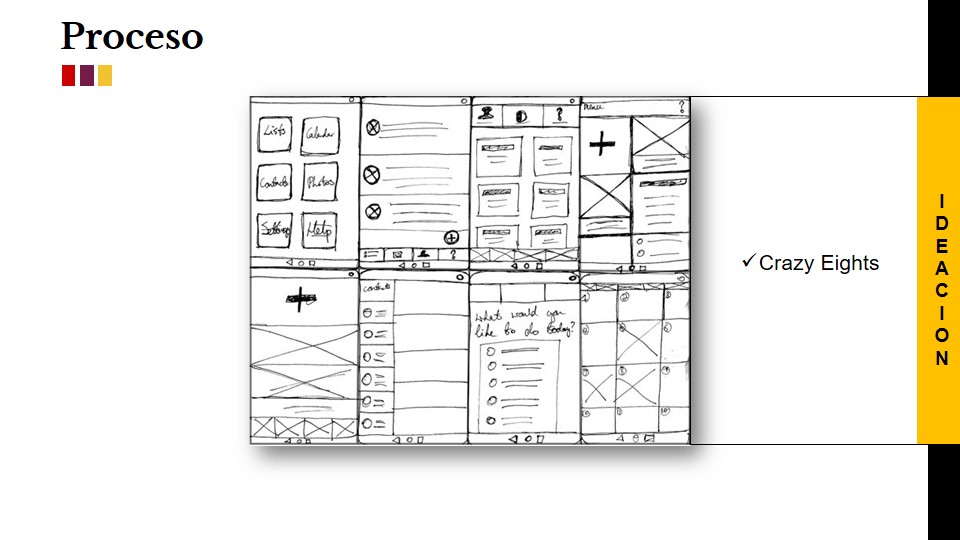 Proceso
Lists
Calendar
Contacts
Photos
Settings
Help
?
?
Menu
?
Contacts
What would you
like to do today?
Crazy Eights
IDEACION